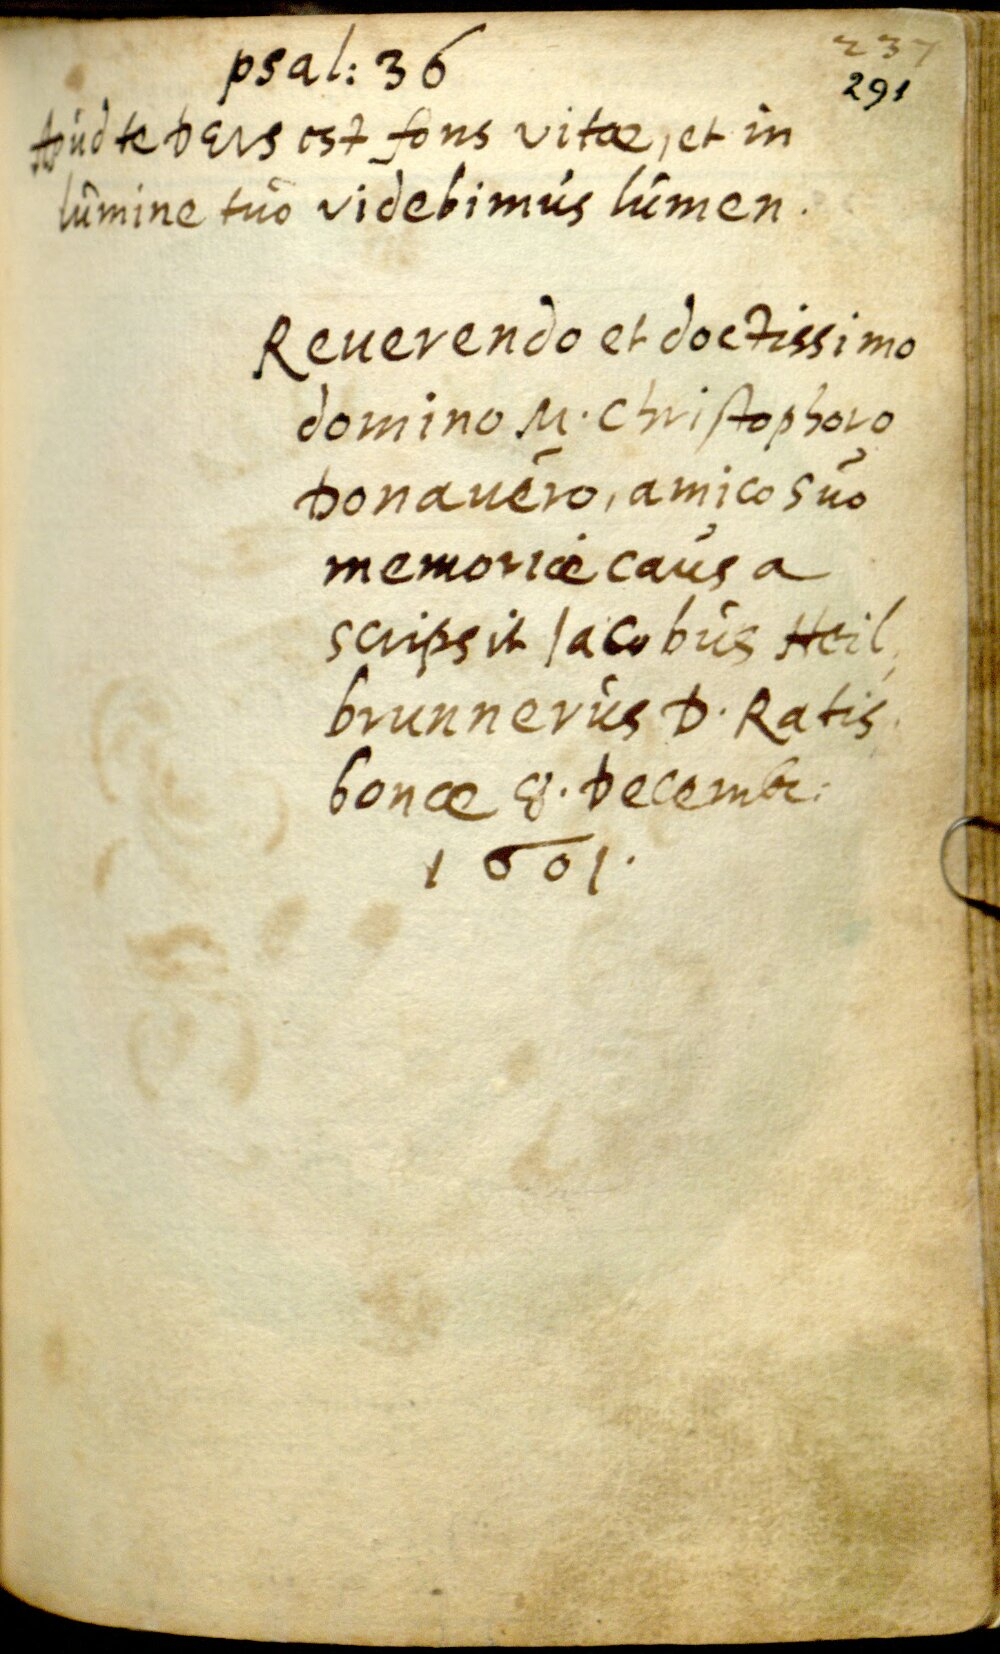 237
psal: 36
291
Apud te DEus est fons vitæ, et in
lumine tuo videbimus lumen.
Reuerendo et doctissimo
domino M. Christophoro
Donauero, amico suo
memoriæ causa
scripsit Iacobus Heil,
brunnerus D. Ratis,
bonæ 8. Decemb:
1601.